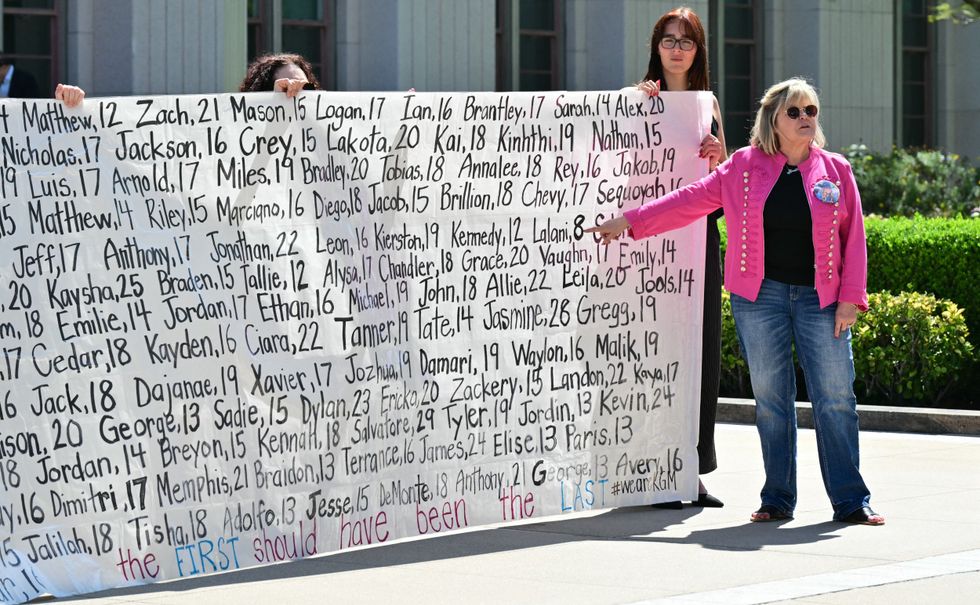 4 Matthew, 12 Zach, 21 Mason, 15 Logan, 17 Ian, 16 Brantley, 17 Sarah, 14 Alex,
Nicholas, 17 Jackson, 16 Crey, 15 Lakota, 20 Kai, 18 Kinhthi, 19 Nathan, 15
19 Luis, 17 Arnold, 17 Miles, 19 Bradley, 20 Tobias, 18 Annalee, 18 Rey, 16 Jakob, 19
15 Matthew, 14 Riley, 15 Marciano, 16 Diego, 18 Jacob, 15 Brillion, 18 Chevy, 17 Sequoyah, 16
Jeff, 17 Anthony, 17 Jonathan, 22 Leon, 16 Kierston, 19 Kennedy, 12 Lalani, 8
20 Kaysha, 25 Braden, 15 Tallie, 12 Alysa, 17 Chandler, 18 Grace, 20 Vaughn, 17 Emily, 14
18 Emilie, 14 Jordan, 17 Ethan, 16 Michael, 19 John, 18 Allie, 22 Leila, 20 Jools, 14
17 Cedar, 18 Kayden, 16 Ciara, 22 Tanner, 19 Tate, 14 Jasmine, 28 Gregg, 19
16 Jack, 18 Dajanae, 19 Xavier, 17 Jozhua, 19 Damari, 19 Waylon, 16 Malik, 19
20 George, 13 Sadie, 15 Dylan, 23 Ericka, 20 Zackery, 15 Landon, 22 Kaya, 17
18 Jordan, 14 Breyon, 15 Kennah, 18 Salvatore, 29 Tyler, 19 Jordin, 13 Kevin, 24
16 Dimitri, 17 Memphis, 21 Braidon, 13 Terrance, 16 James, 24 Elise, 13 Paris, 13
15 Jalilah, 18 Tisha, 18 Adolfo, 13 Jesse, 15 DeMonte, 18 Anthony, 21 George, 13 Avery, 16
16 the FIRST should have been the LAST #weareKGM